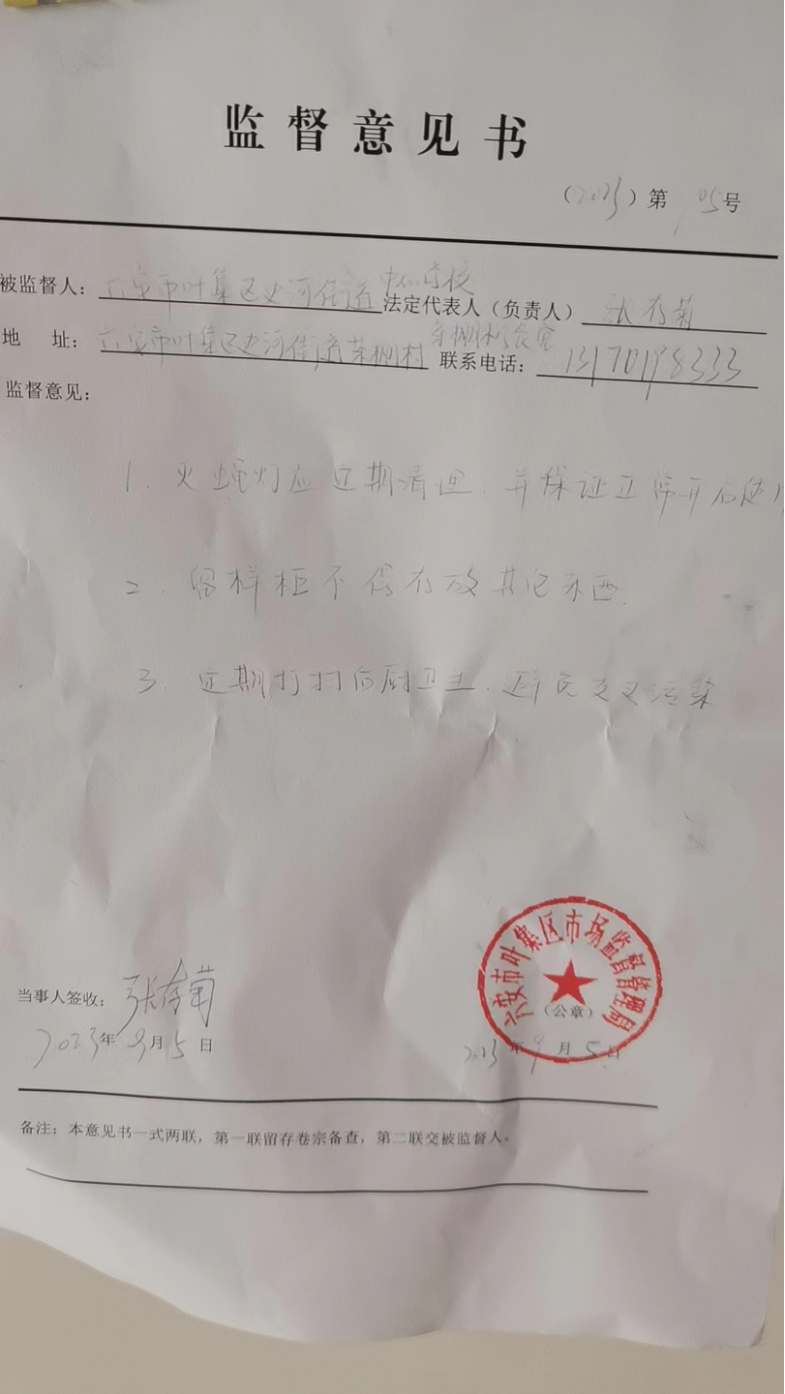 监督意见书
（2023）第 905号
被监督人：六安市叶集区史河街道中心学校 法定代表人（负责人）张存菊
地 址：六安市叶集区史河街道茶棚村茶棚村食堂 联系电话：13170198333
监督意见：
1. 灭蝇灯应近期清理，并保证正常开启使用
2. 留样柜不得存放其它东西.
3. 近期打扫后厨卫生，避免交叉污染
六安市叶集区市场监督管理局
（公章）
当事人签收：张存菊
2023年9月5日
2023年9月5日
备注：本意见书一式两联，第一联留存卷宗备查，第二联交被监督人。